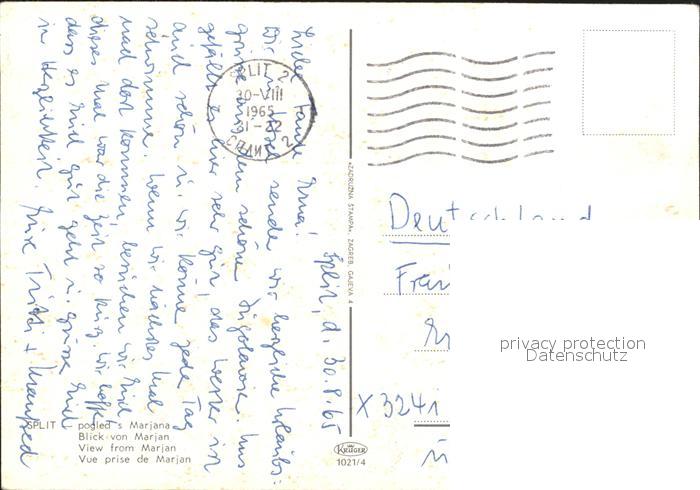 Split, d. 30.8.65
Liebe Tante Erna!
Wir senden wir herzliche Urlaubs-
grüsse aus dem schönen Jugoslawien. Uns
gefällt es hier sehr gut, das Wetter ist
auch schön u. wir können jede Tag
schwimmen. Wenn wir nächstes Mal
nach dort kommen, besuchen wir Euch
dieses Mal war die Zeit so kurz. Wir hoffen
dass es Euch gut geht u. grüsse Euch
in Herzlichkeit. Eure Trudi + Manfred
SPLIT 2
30-VIII
1965
СПЛИТ 2
SPLIT - pogled s Marjana
Blick von Marjan
View from Marjan
Vue prise de Marjan
«ZADRUŽNA ŠTAMPA», ZAGREB, GAJEVA 4
KRÜGER
1021/4
Deutschland
X 3241
privacy protection
Datenschutz